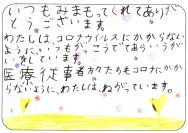 いつもみまもってくれてありが
とうございます。
わたしは、コロナウイルスにかからない
ように、いつもがっこうでてあらいうがい
をしています。
医療従事者方々たちもコロナにかか
らないように、わたしは、ねがっています。